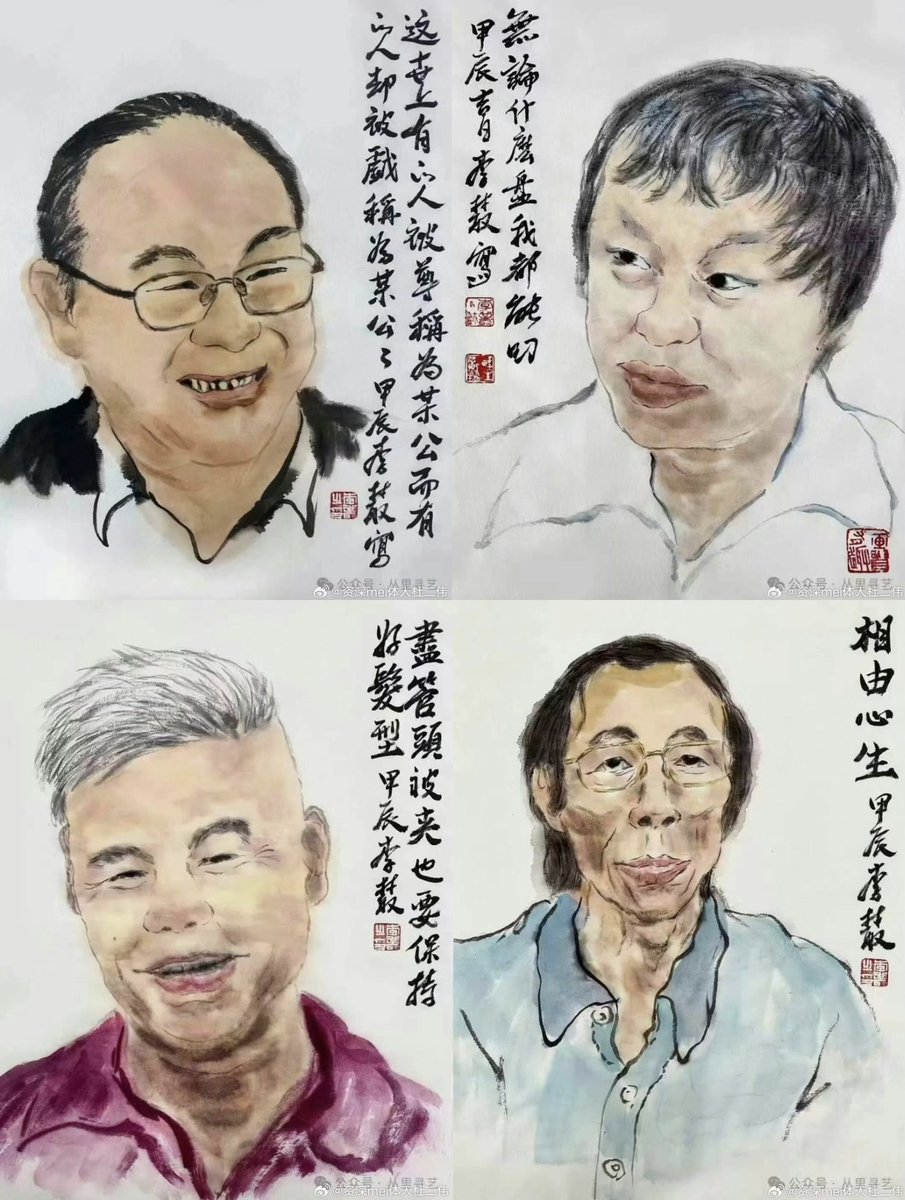 这世上有的人被尊称为某公而有
的人却被戏称为某公公甲辰李蔜寫
無論什麼盘我都能叼
甲辰吉日李蔜寫
公众号·从里寻艺
@资深mei体人杜二伟
公众号·从里寻艺
@资深mei体人杜二伟
盡管頭被夹也要保持
好髮型甲辰李蔜
相由心生甲辰李蔜
公众号·从里寻艺
@资深mei体人杜二伟
公众号·从里寻艺
@资深mei体人杜二伟